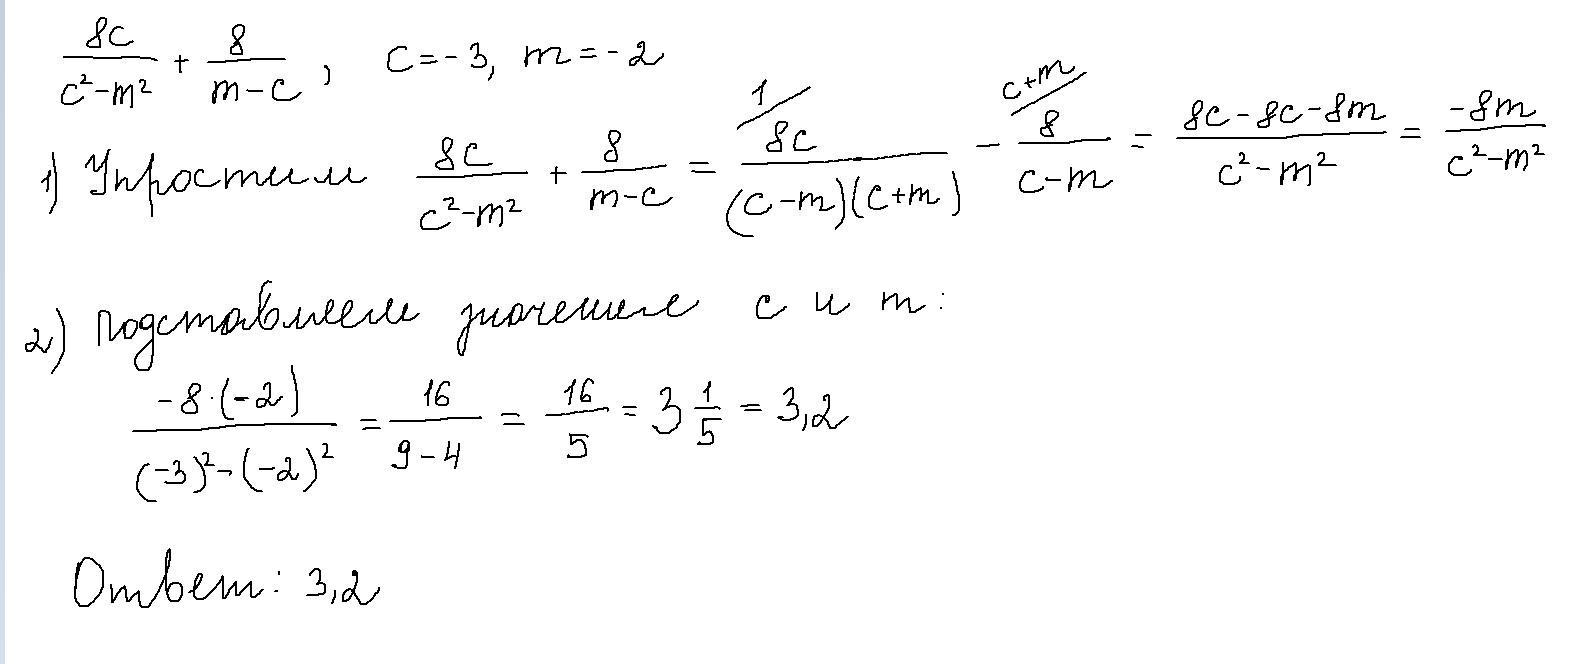 8c/(c²-m²) + 8/(m-c), c=-3, m=-2
1) Упростим 8c/(c²-m²) + 8/(m-c) = 1/ 8c/((c-m)(c+m)) - c+m/ 8/(c-m) = (8c-8c-8m)/(c²-m²) = -8m/(c²-m²)
2) Подставляем значение c и m:
-8·(-2)/((-3)²-(-2)²) = 16/(9-4) = 16/5 = 3 1/5 = 3,2
Ответ: 3,2